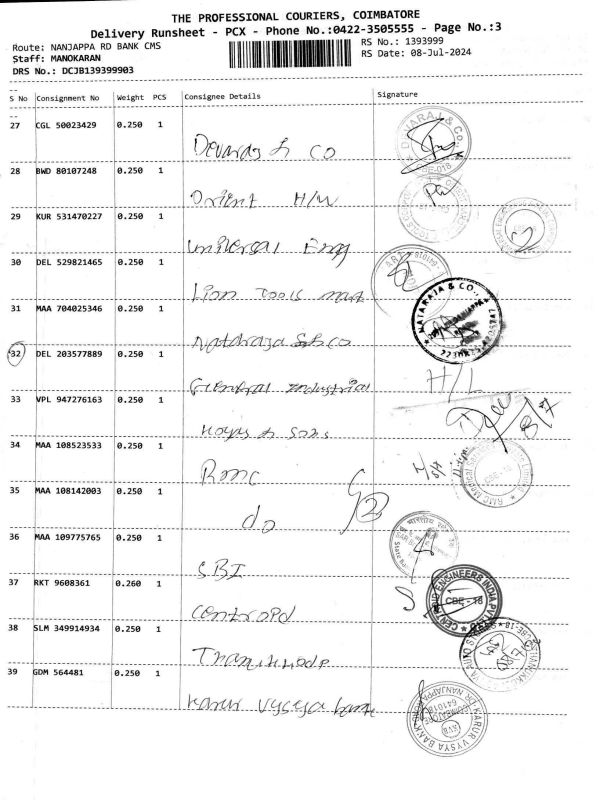 THE PROFESSIONAL COURIERS, COIMBATORE
Delivery Runsheet - PCX - Phone No.:0422-3505555 - Page No.:3
Route: NANJAPPA RD BANK CMS
RS No.: 1393999
Staff: MANOKARAN
RS Date: 08-Jul-2024
DRS No.: DCJB139399903
S No Consignment No Weight PCS Consignee Details Signature
27 CGL 50023429 0.250 1
Devaraj & CO
28 BWD 80107248 0.250 1
Orient H/W
29 KUR 531470227 0.250 1
Universal Eng
30 DEL 529821465 0.250 1
Lion Tools mart
31 MAA 704025346 0.250 1
Nataraja & CO
32 DEL 203577889 0.250 1
General Industrial
H/L
33 VPL 947276163 0.250 1
& Sons
34 MAA 108523533 0.250 1
Rmc
35 MAA 108142003 0.250 1
do
2
36 MAA 109775765 0.250 1
SBI
37 RKT 9608361 0.260 1
CBE - 18
38 SLM 349914934 0.250 1
39 GDM 564481 0.250 1
Karur Vysya bank